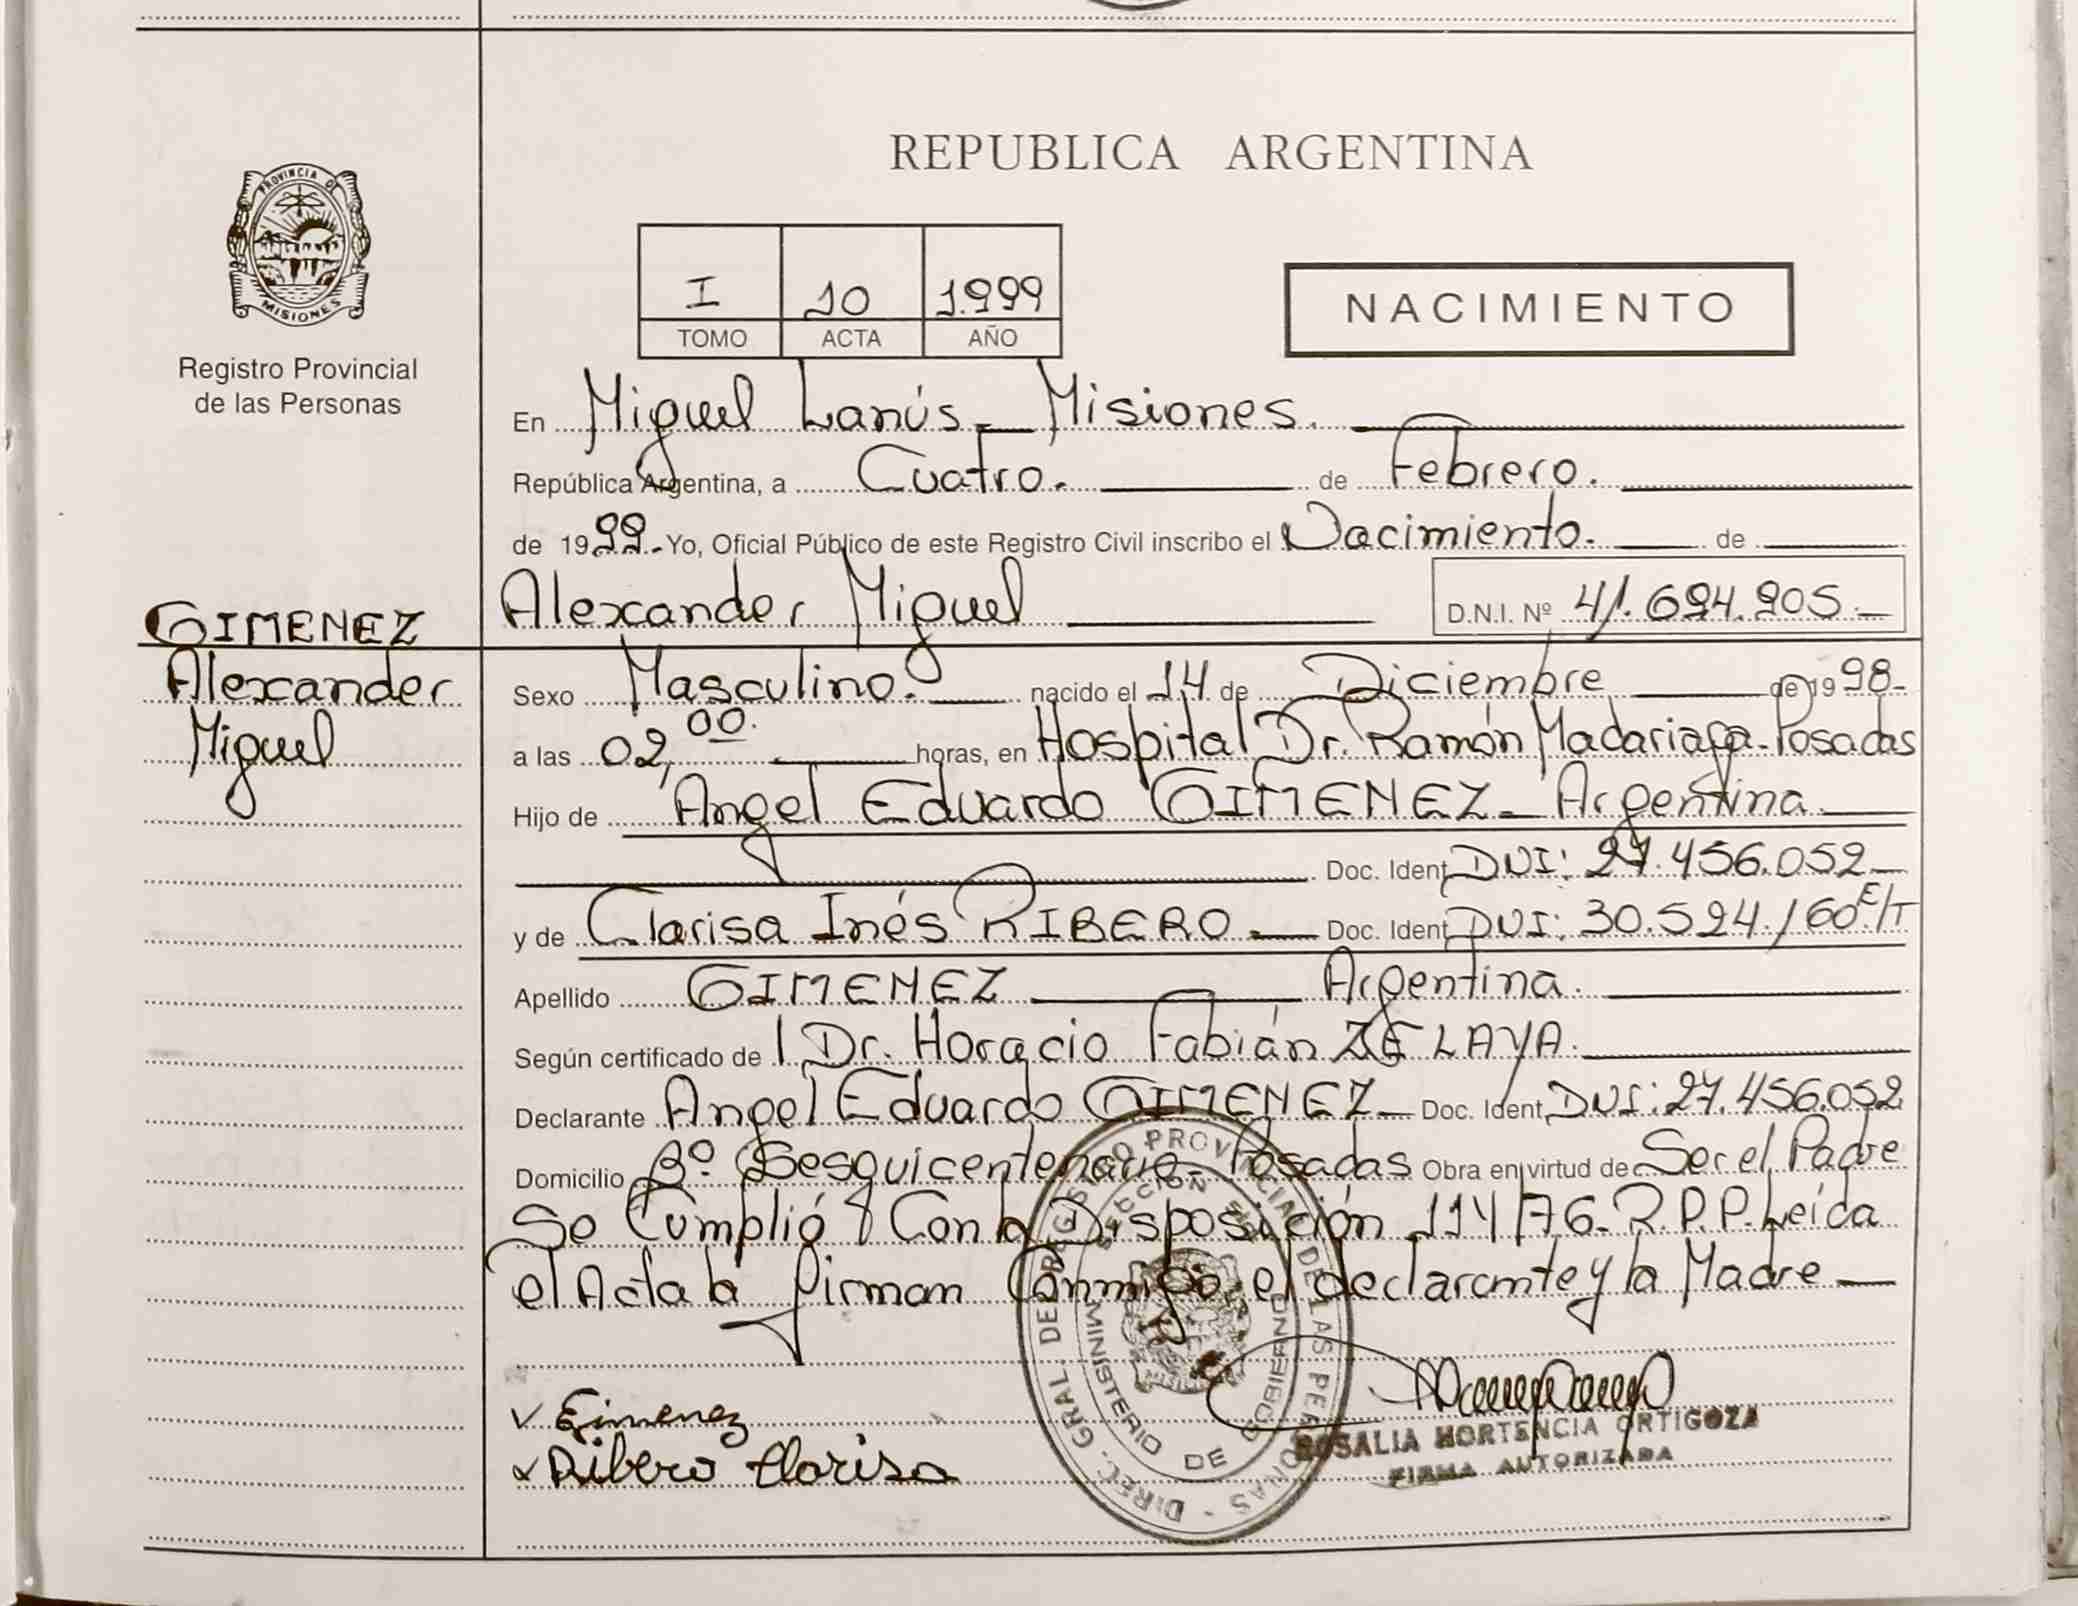 PROVINCIA DE
MISIONES
Registro Provincial
de las Personas
GIMENEZ
Alexander
Miguel
REPUBLICA ARGENTINA
I 10 1.999
TOMO ACTA AÑO
NACIMIENTO
En Miguel Lanús - Misiones.
República Argentina, a Cuatro. de Febrero.
de 1999.- Yo, Oficial Público de este Registro Civil inscribo el Nacimiento. de
Alexander Miguel D.N.I. Nº 41.694.905.-
Sexo Masculino. nacido el 14 de Diciembre de 1998-
a las 02,00. horas, en Hospital Dr. Ramón Madariaga-Posadas
Hijo de Angel Eduardo GIMENEZ - Argentina
Doc. Ident. DNI: 27.456.052-
y de Clarisa Inés RIBERO - Doc. Ident. DNI: 30.524.160 E/T
Apellido GIMENEZ Argentina.
Según certificado de Dr. Horacio Fabián ZELAYA.
Declarante Angel Eduardo GIMENEZ - Doc. Ident. DNI: 27.456.052
Domicilio Bº Sesquicentenario - Posadas Obra en virtud de Ser el Padre
Se Cumplió Con la Disposición 114/76-R.P.P. Leída
el Acta la firman Conmigo el declarante y la Madre
Gimenez
Ribero Clarisa
DIREC. GRAL. DE REGISTRO PROVINCIAL DE LAS PERSONAS
SECCION
MINISTERIO DE GOBIERNO
ROSALIA HORTENCIA ORTIGOZA
FIRMA AUTORIZADA